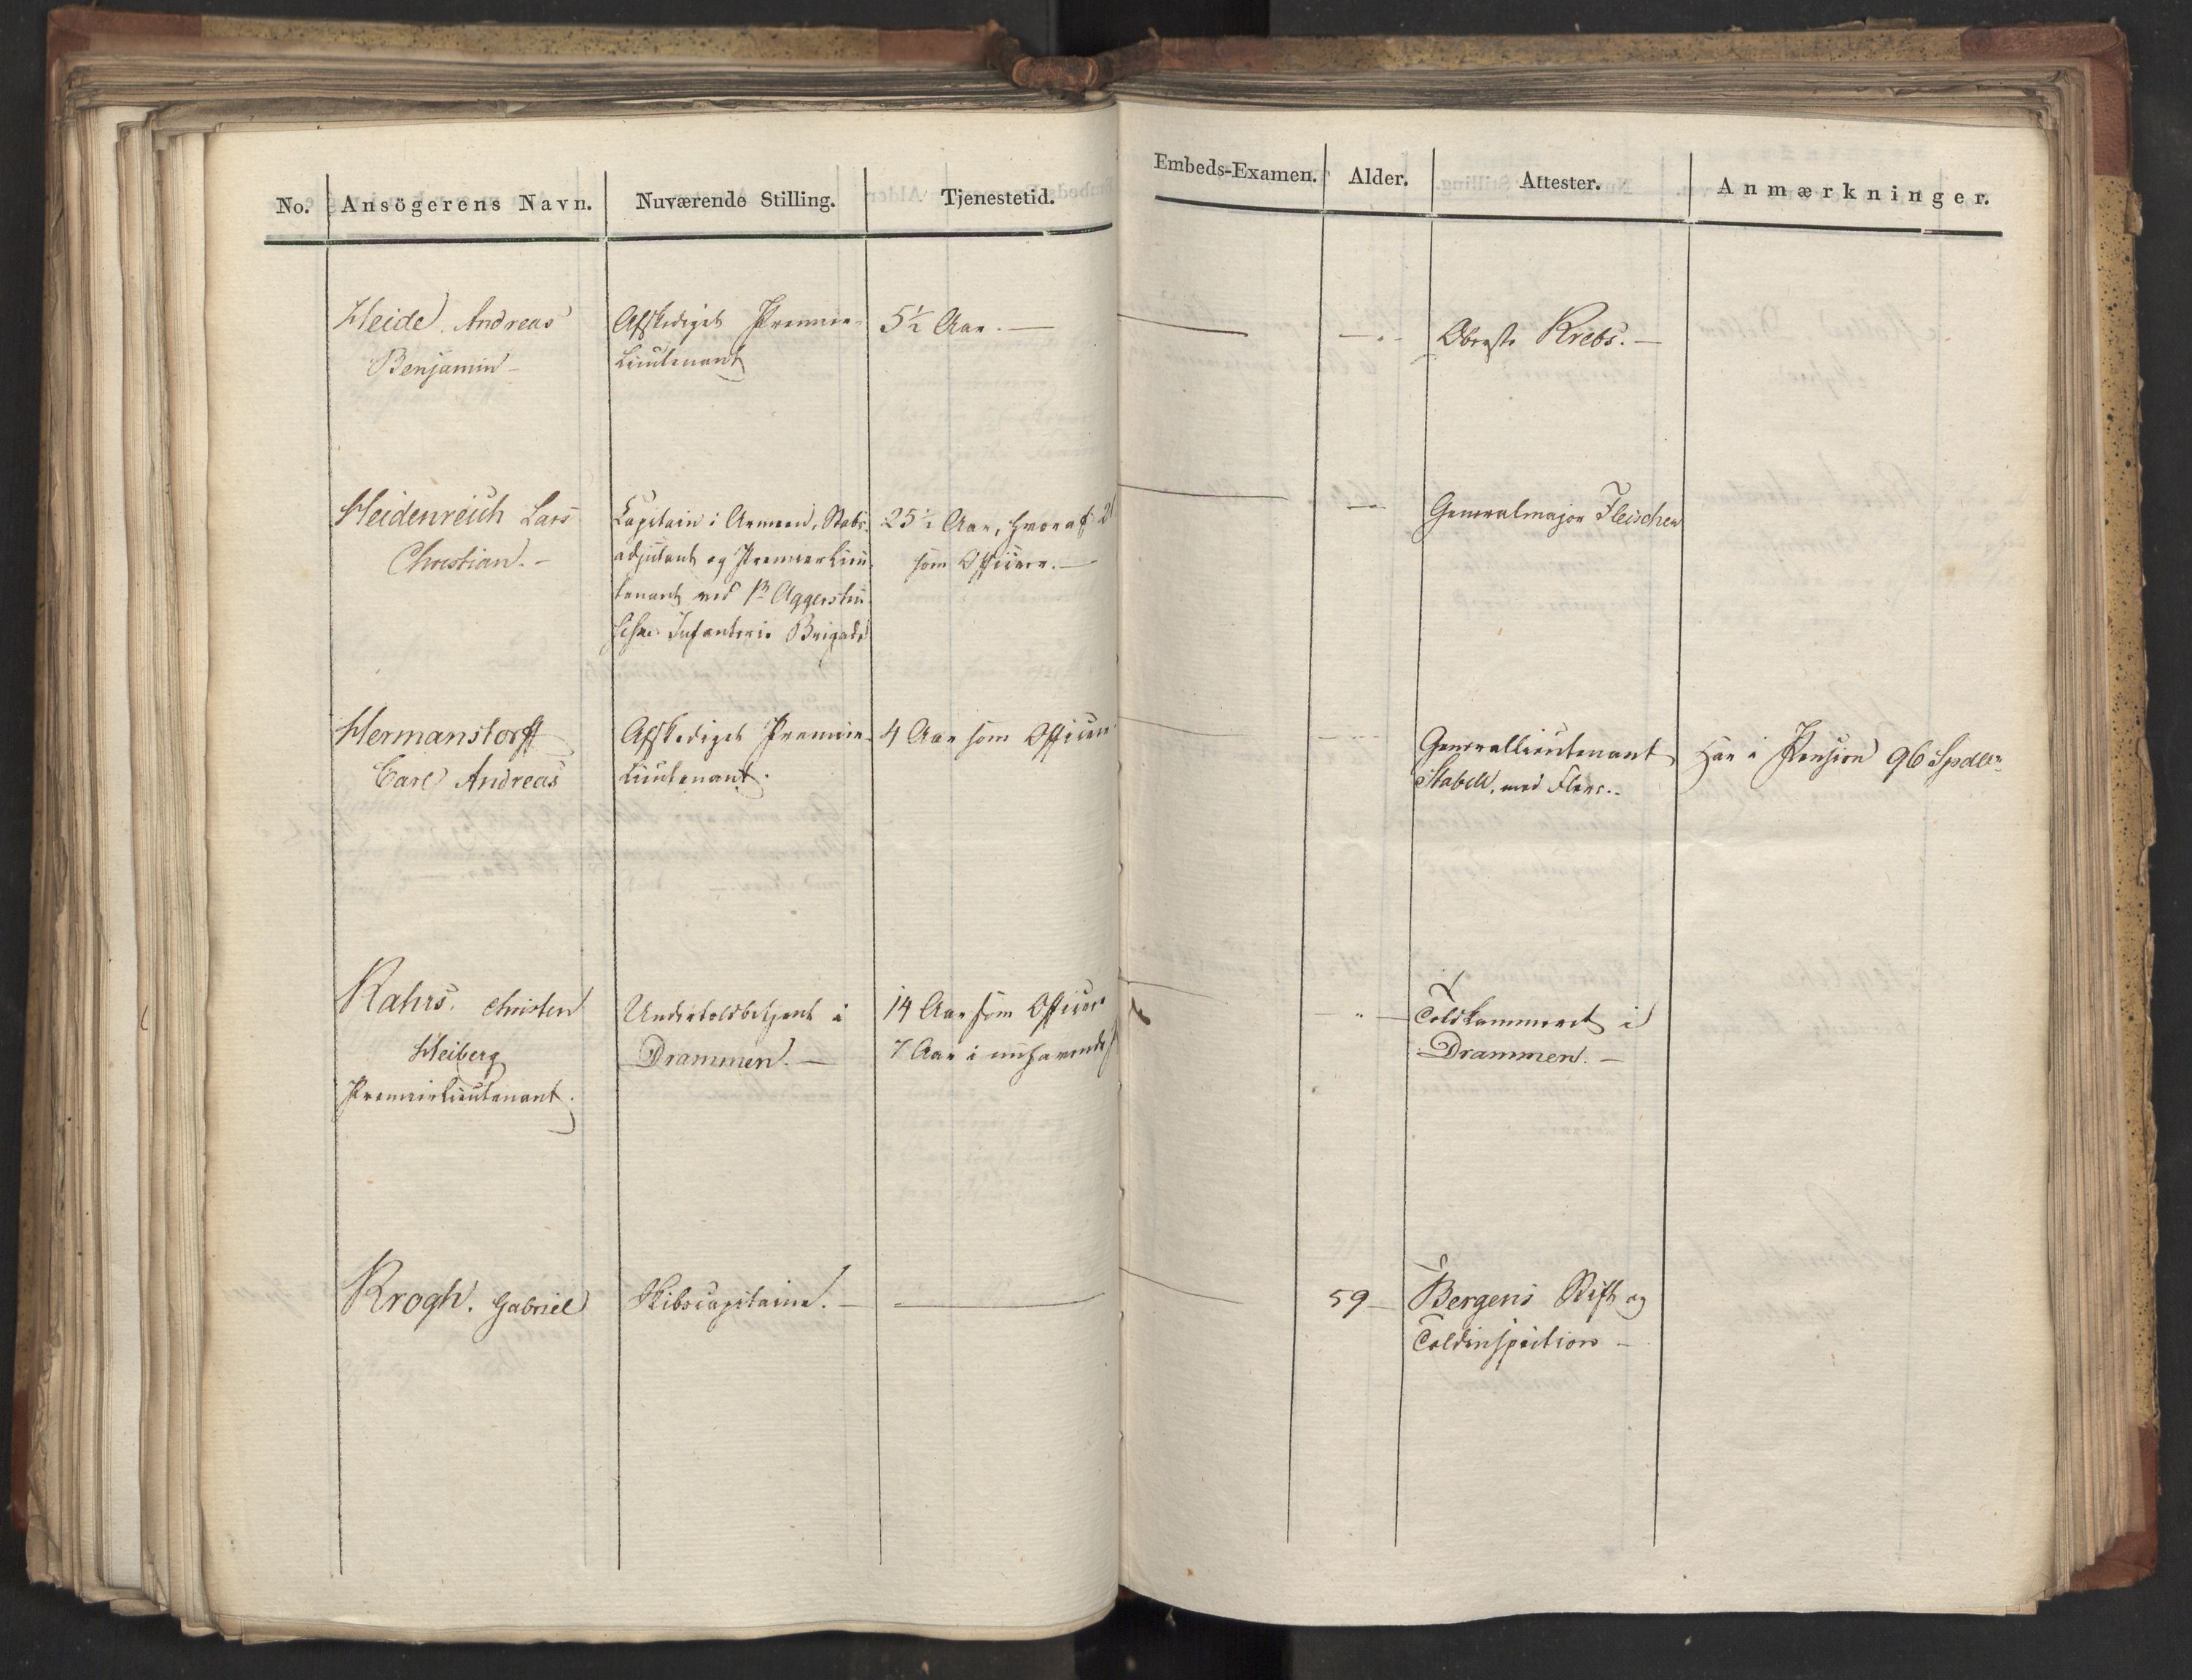 No. Ansögerens Navn. Nuværende Stilling. Tjenestetid. Embeds-Examen. Alder. Attester. Anmærkninger.
Heide. Andreas Afskediget Premier- 5½ Aar. — — — Oberste Krebs. —
Benjamin – Lieutenant
Heidenreich Lars Capitain i Armeen, Stabs- 25½ Aar, hvoraf 21 — — Generalmajor Fleischer
Christian. – adjutant og Premier Lieu- som Officeer. —
tenant ved Aggershuu-
siske Infanterie Brigade
Hermanstorff Afskediget Premier- 4 Aar som Officeer — — Generallieutenant Har i Pension 96 Spdlr
Carl Andreas Lieutenant. Stabell, med Flere. –
Kahrs. Christen Undertoldbetjent i 14 Aar som Officeer — — Toldkammeret i
Heiberg Drammen. — 7 Aar i nuhavende P Drammen. —
Premierlieutenant.
Krogh. Gabriel Skibscapitaine. — — — 59 — Bergens Stift og
Toldinspection –